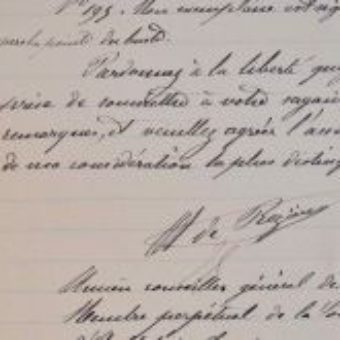 N° 195. Mon exemplaire est sig
du buste.
Pardonnez à la liberté que
prise de soumettre à votre sagaci
remarques, et veuillez agréer l'assu
de ma considération la plus disting
de
Ancien conseiller général de
Membre perpétuel de la So